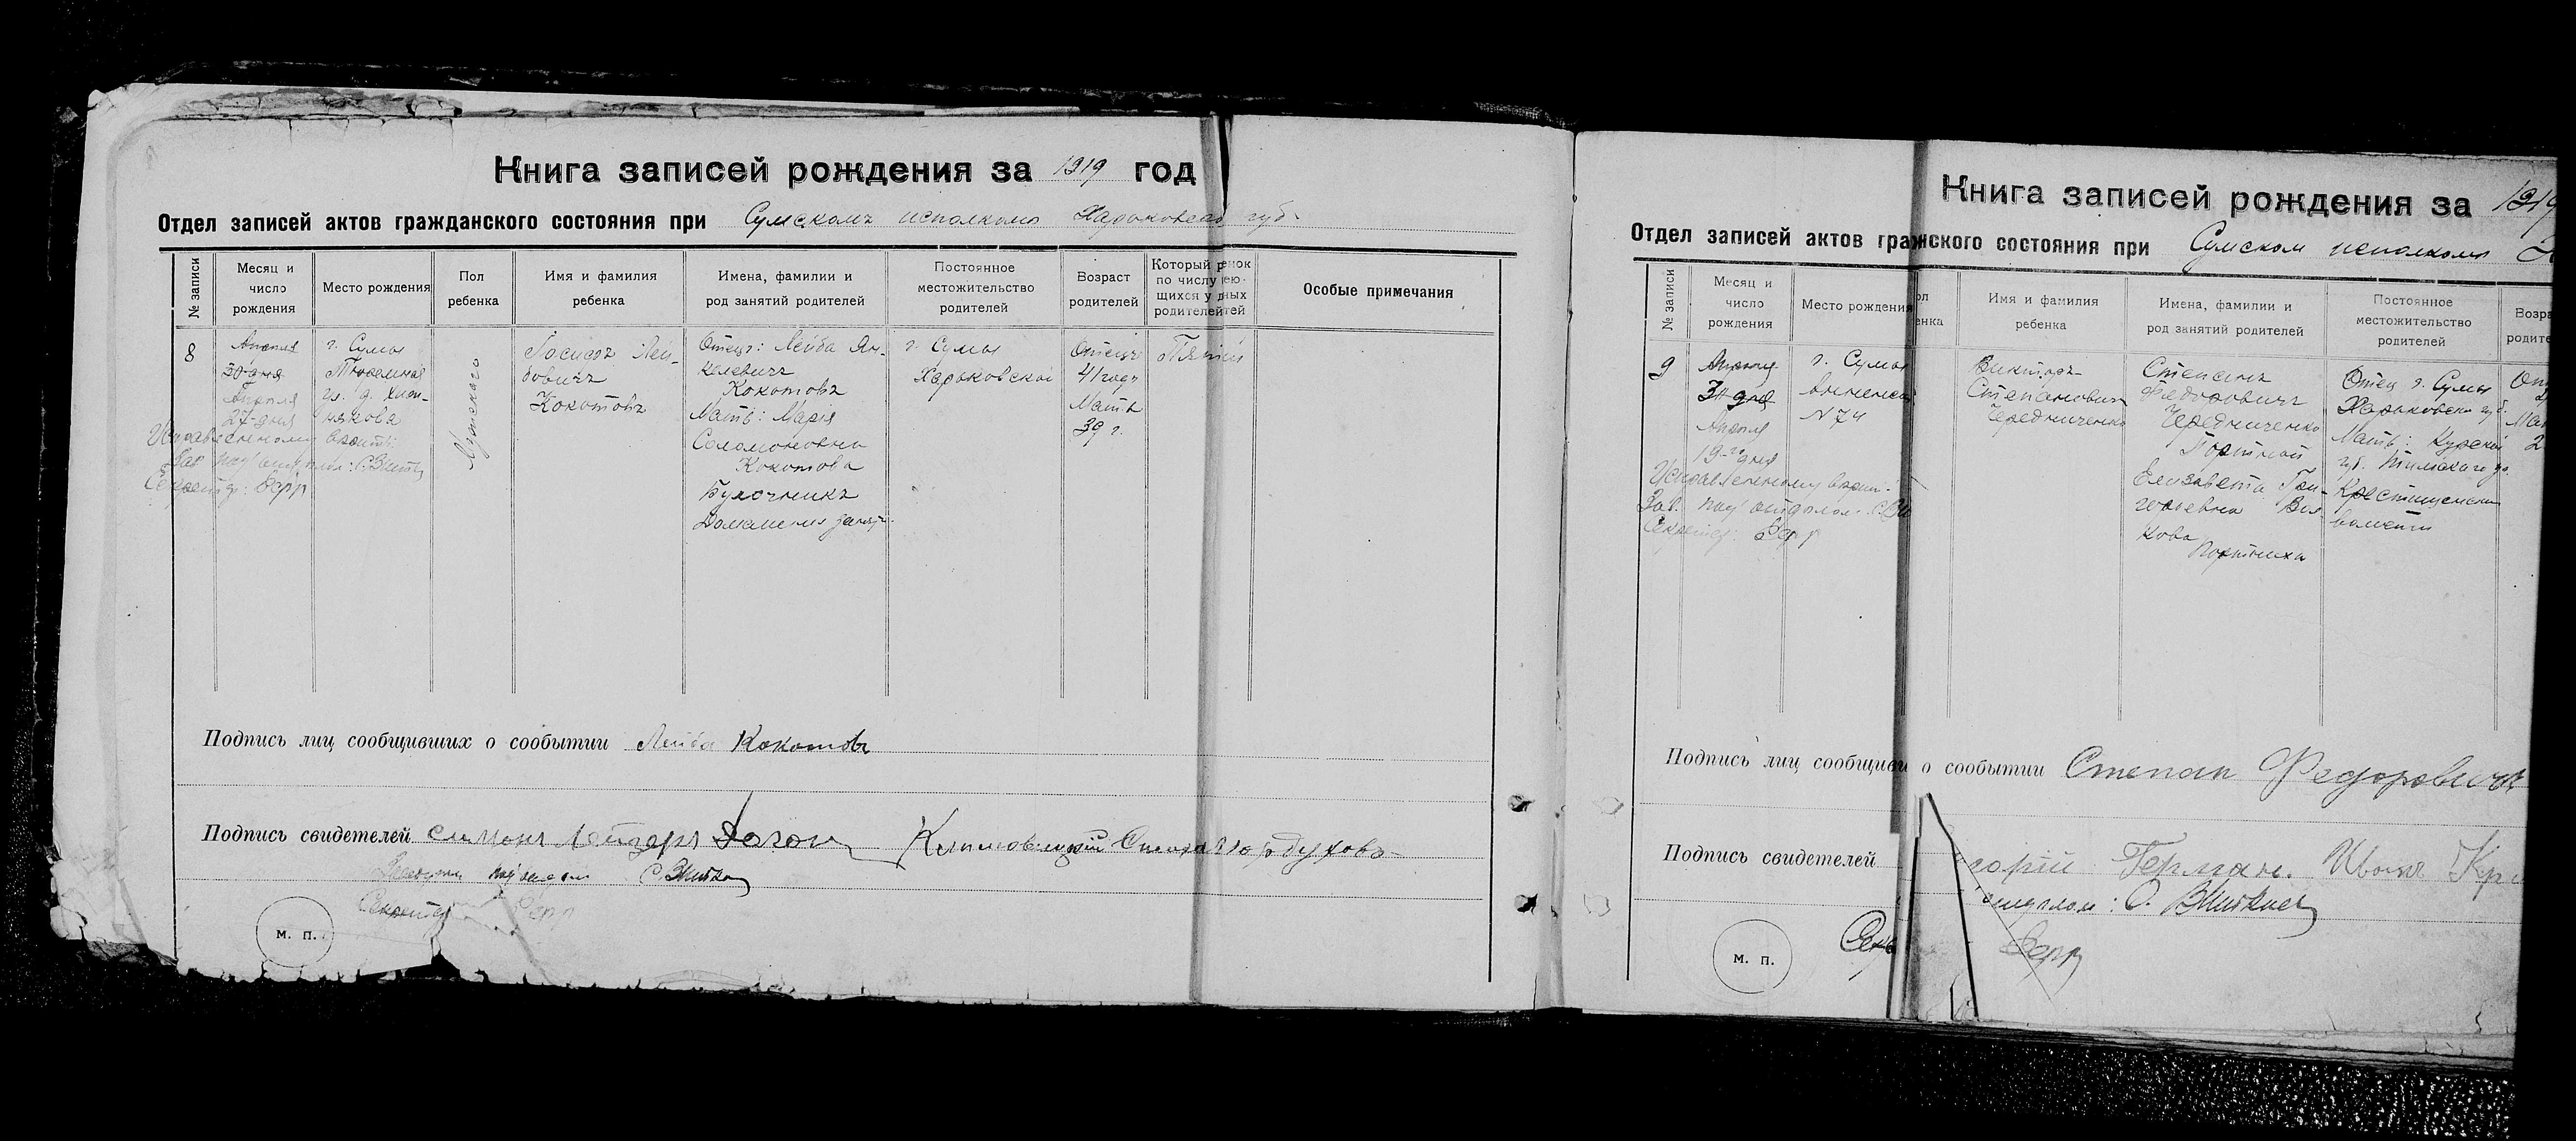 Книга записей рождения за 1919 год
Отдел записей актов гражданского состояния при Сумскомъ исполкоме Харьковской губ.
№ записи
Месяц и
число
рождения
Место рождения
Пол
ребенка
Имя и фамилия
ребенка
Имена, фамилии и
род занятий родителей
Постоянное
местожительство
родителей
Возраст
родителей
Который ре
нок
по числу
ею-
щихся у
дных
родителей
тей
Особые примечания
8
Апреля
30 дня
Апреля
27-дня
г. Сумы
ул. д.
Мужского
Лей-
бовичъ
Кокотовъ
Отецъ: Лейба Ян-
келевичъ
Кокотовъ
Мать: Марія
Соломоновна
Кокотова
Булочникъ
Домашнія занят.
г. Сумы
Харьковской
Отецъ
41 годъ
Мать
39 г.
Пятый
Исправленному верить:
Зав. под отделом:
Секретарь:
Подпись лиц сообщивших о сообытии Лейба Кокотовъ
Подпись свидетелей Симонъ Лейзеръ
под отделом
Секретарь
м. п.
Книга записей рождения за 1919
Отдел записей актов граж
ского состояния при Сумском исполкоме
№ записи
Месяц и
число
рождения
Место рождения
ол
енка
Имя и фамилия
ребенка
Имена, фамилии и
род занятий родителей
Постоянное
местожительство
родителей
Возра
родите
9
Апреля
30 дня
Апреля
19-го дня
г. Сумы
N 74
Викторъ
Степановичъ
Чередниченко
Степанъ
Федоровичъ
Чередниченко
Портной
Елизавета Гри-
горьевна Вол-
кова
Портниха
Отец г. Сумы
Харьковской губ.
Мать: Курской
губ. Тимского у.
волости
От
2
Мат
2
Исправленному верить:
Зав. под отделом:
Секретарь:
Подпись лиц сообщив
о сообытии Степан Федоровичъ
Подпись свидетелей
горій Герман. Иванъ Кр
отделом:
Секр
м. п.